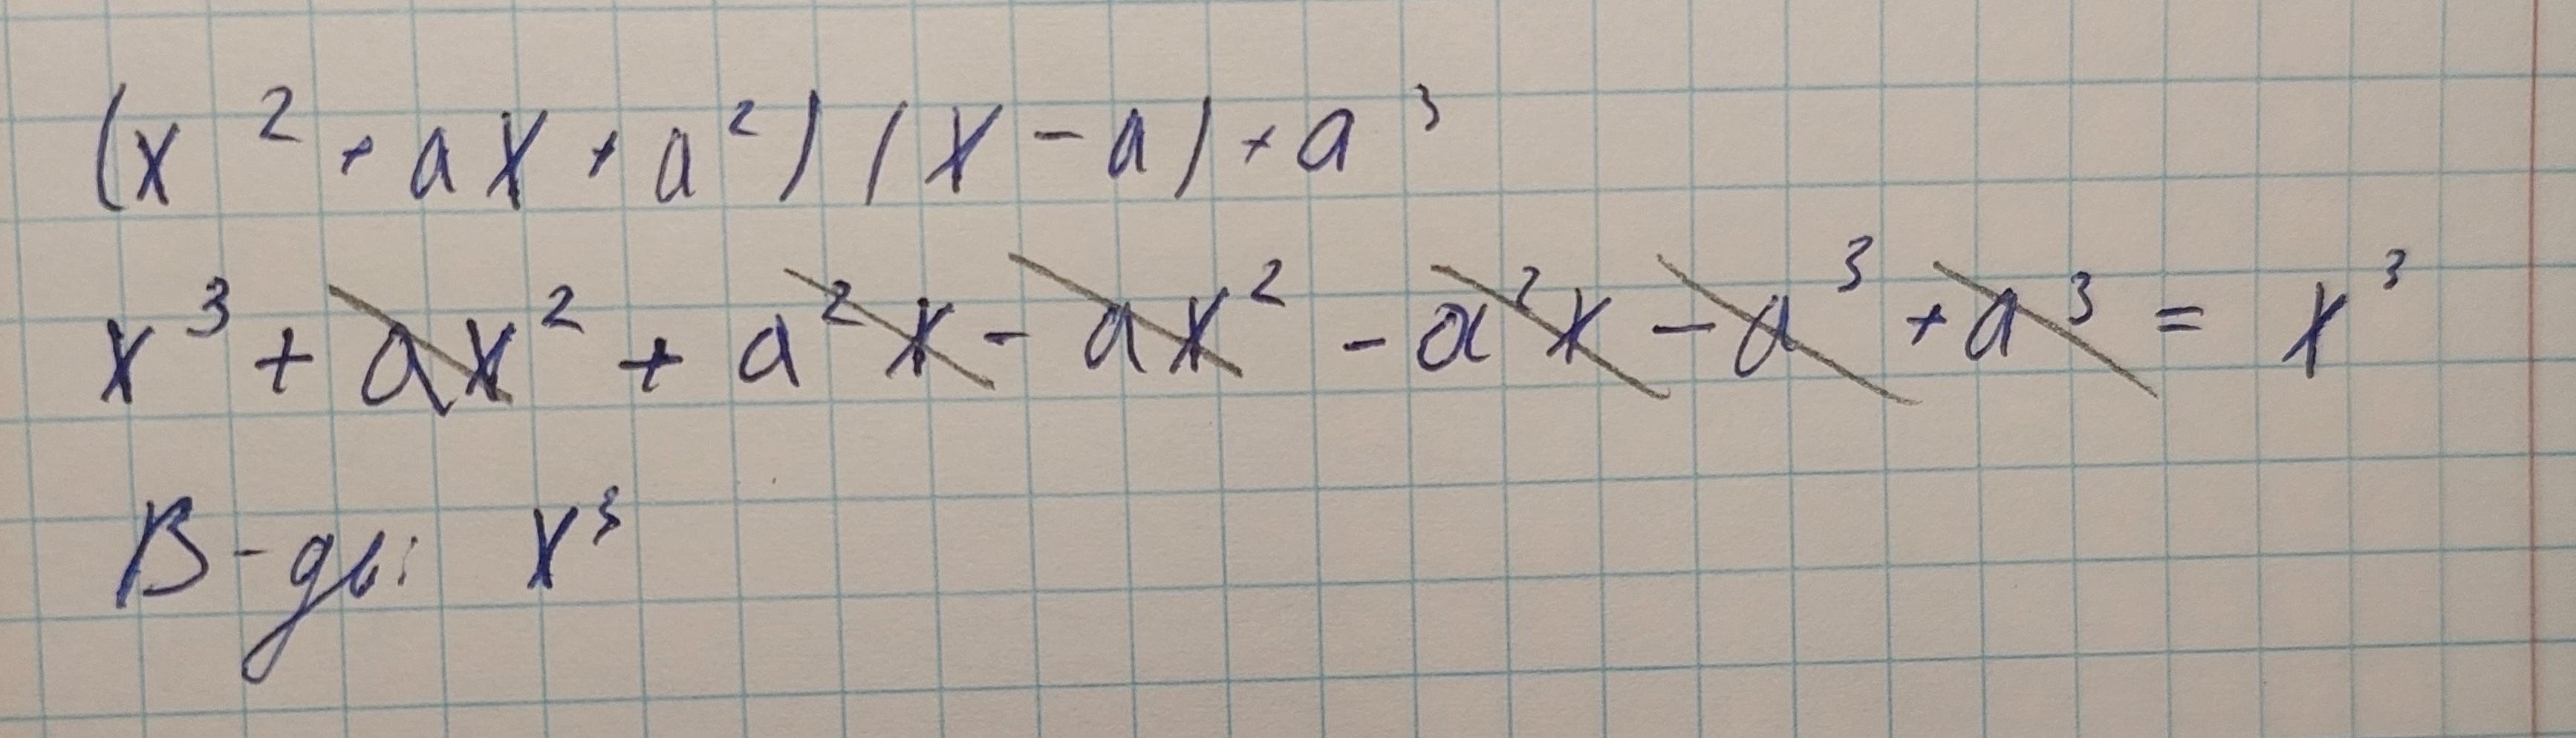 (x² + ax + a²)(x - a) + a³
x³ + ax² + a²x - ax² - a²x - a³ + a³ = x³
В-дь: x³